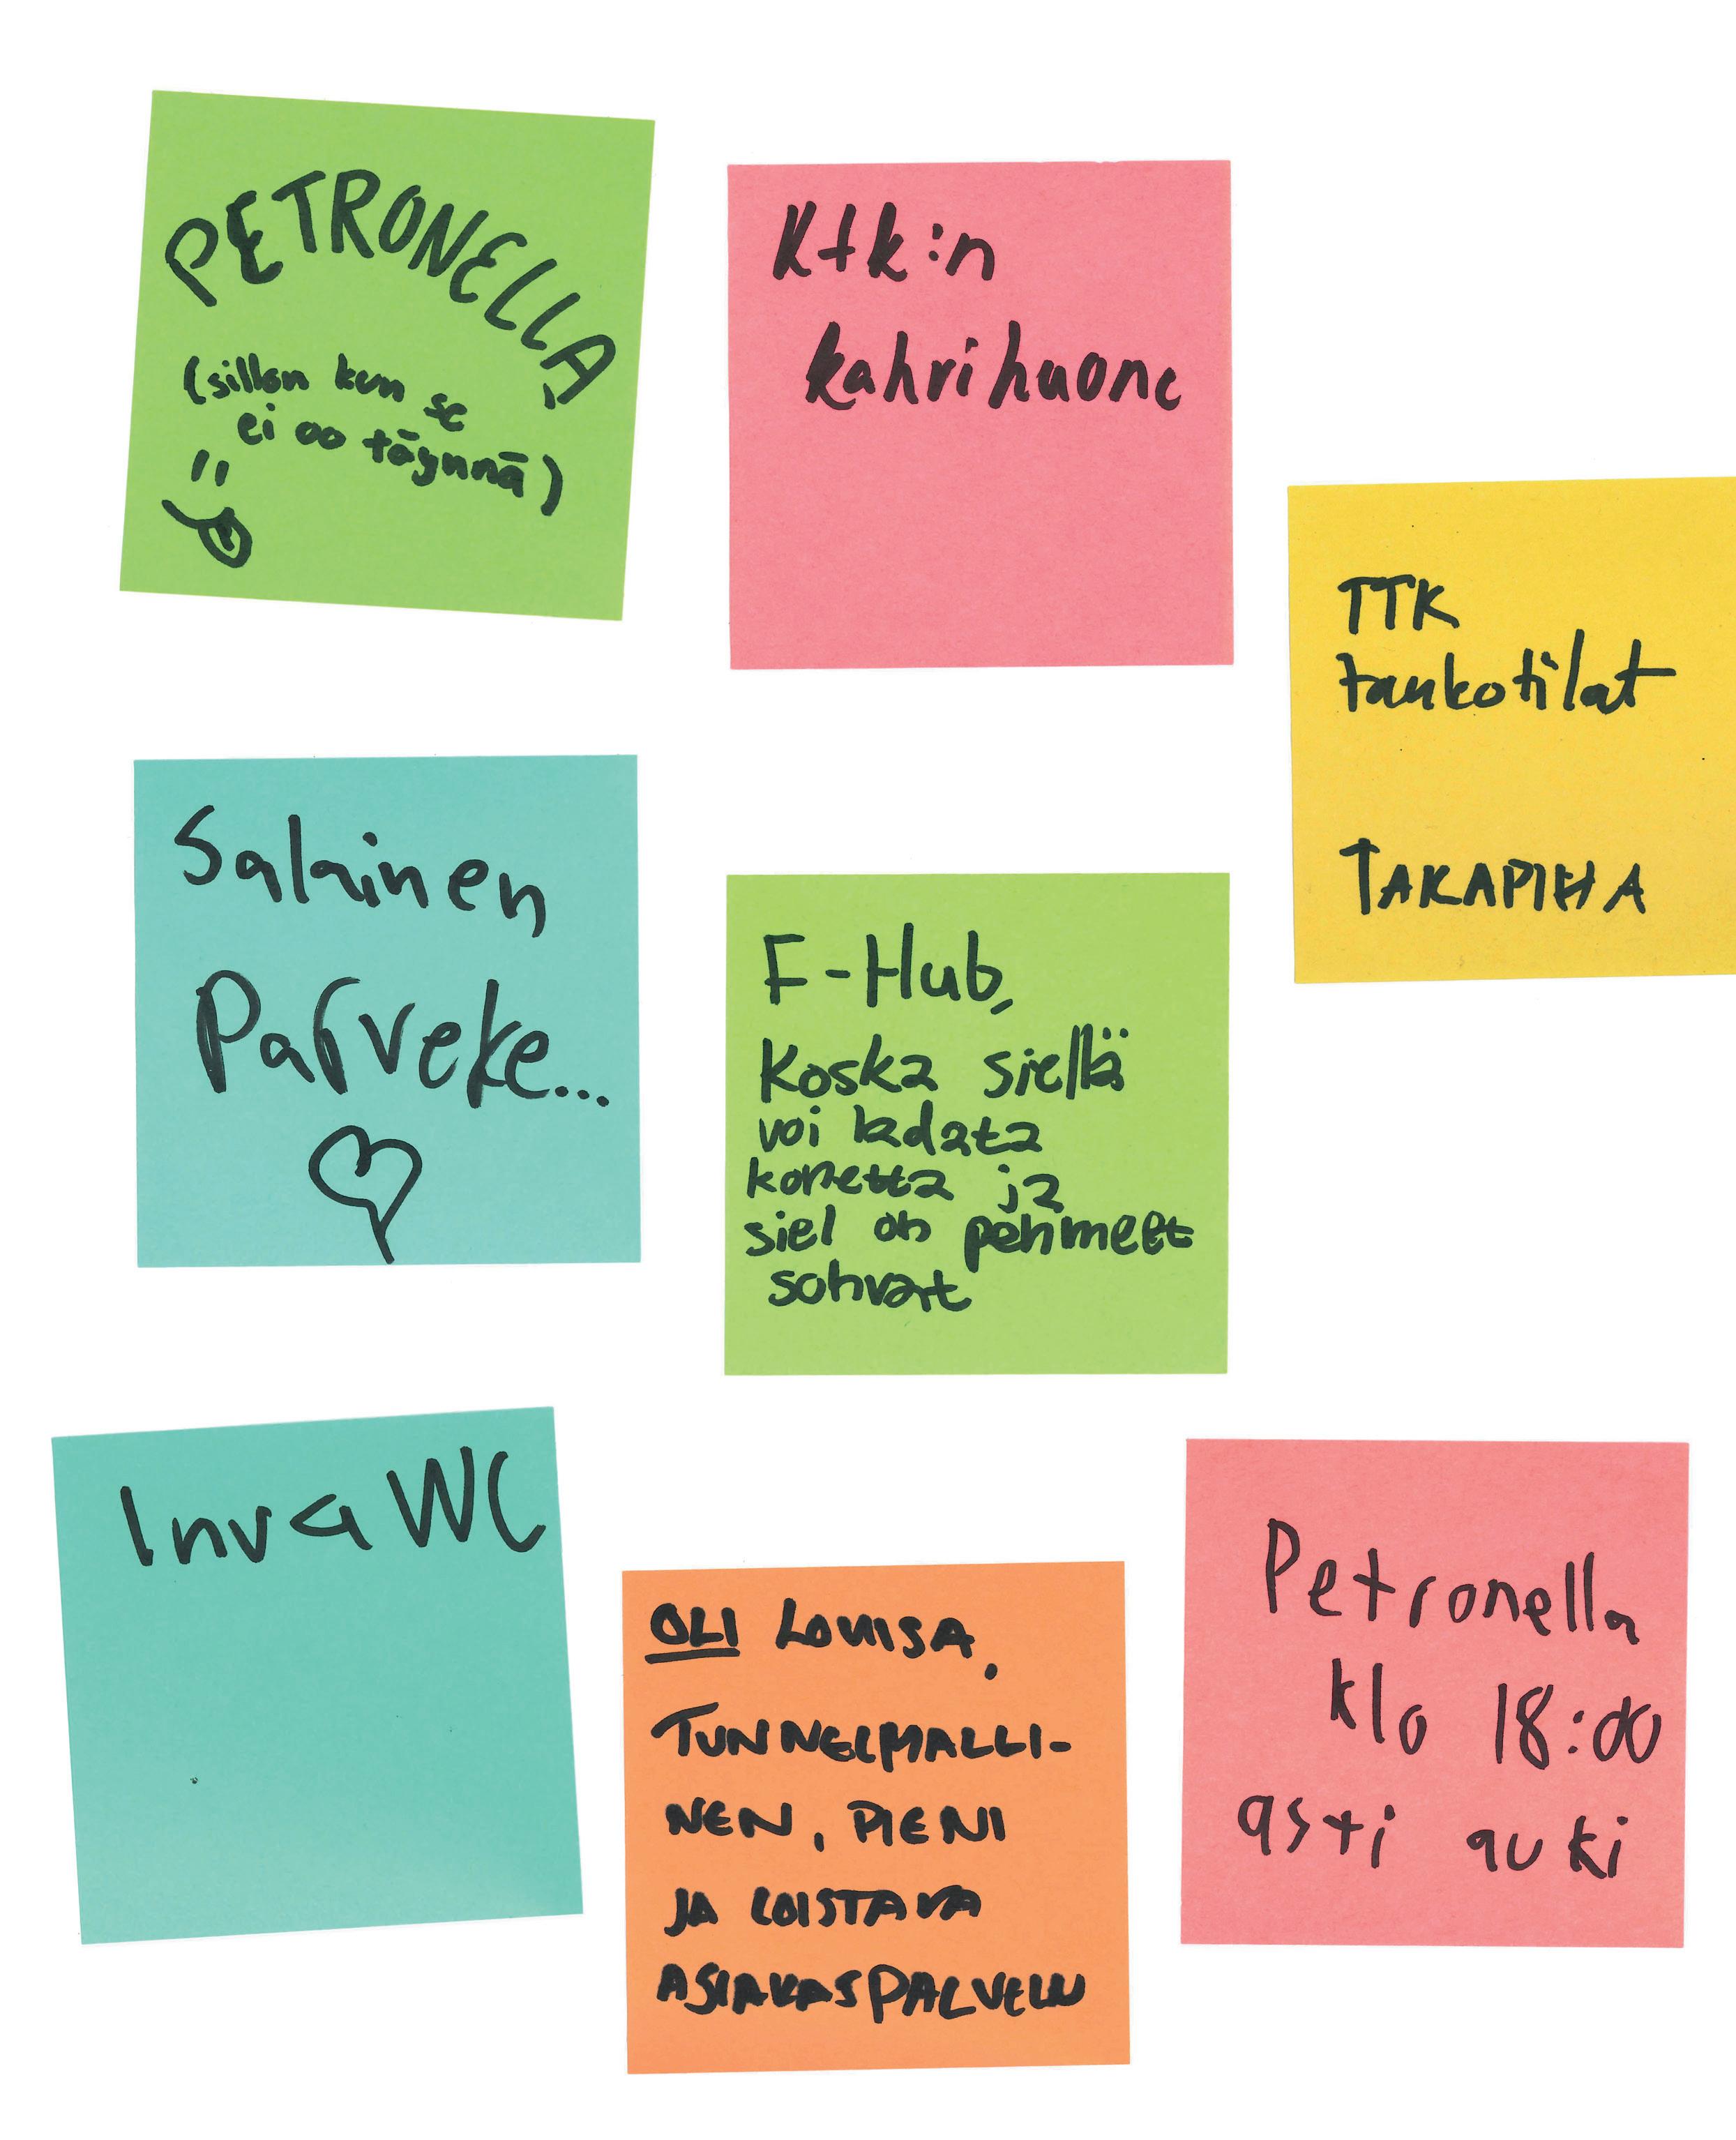 PETRONELLA
(sillon kun se
ei oo täynnä)
Ktk:n
kahvihuone
TTK
taukotilat
TAKAPIHA
Salainen
Parveke...
F-Hub,
Koska siellä
voi ladata
konetta ja
siel on pehmeet
sohvat
Inva WC
OLI LOUISA.
TUNNELMALLI-
NEN, PIENI
JA LOISTAVA
ASIAKASPALVELU
Petronella
klo 18:00
asti auki